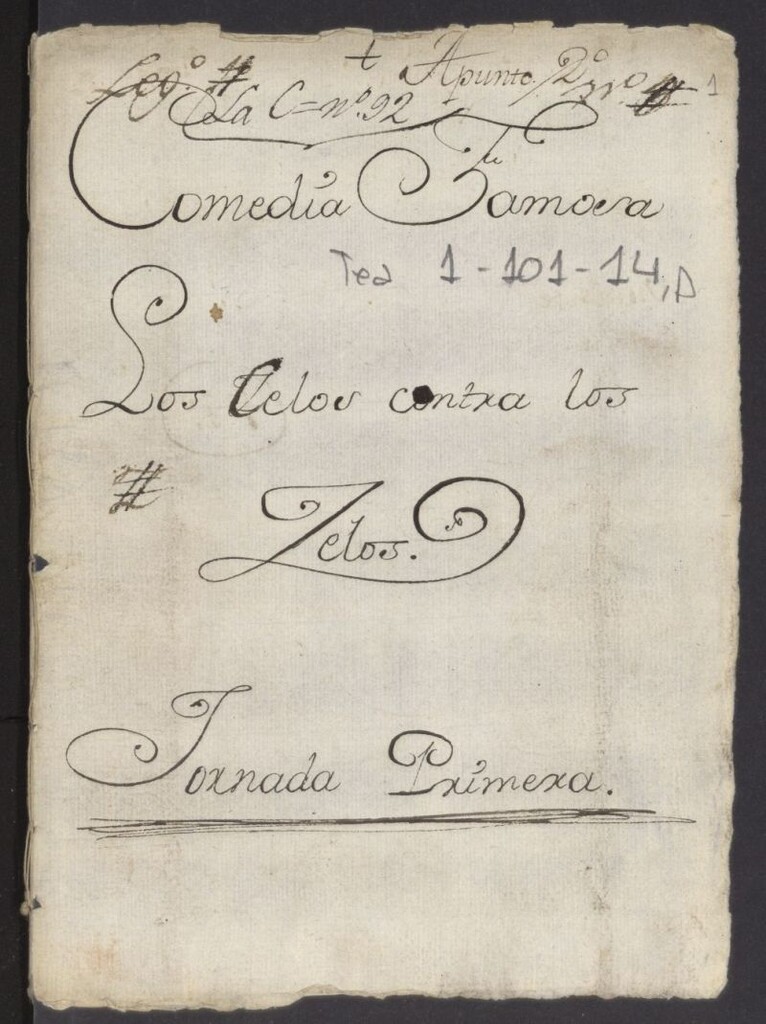 Leg.º # t Apunto 2º 1
La C = nº. 92
Comedia Famosa
Tea 1-101-14, A
Los Celos contra los
#
Zelos.
Jornada Primera.